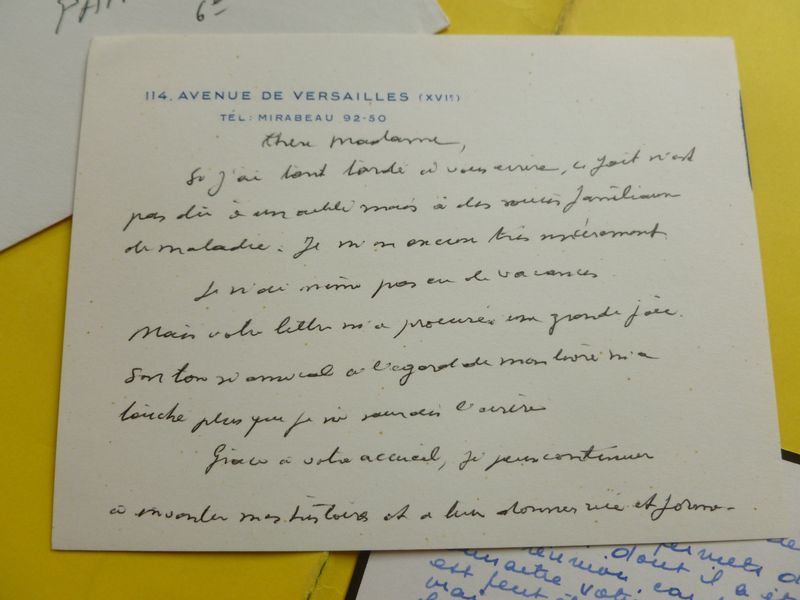 6e
114, AVENUE DE VERSAILLES (XVIe)
TÉL: MIRABEAU 92-50
Chère Madame,
Si j'ai tant tardé à vous écrire, ce fait n'est
pas dû à un oubli mais à des soucis familiaux
de maladie. Je m'en excuse très sincèrement.
Je n'ai même pas eu de vacances.
Mais votre lettre m'a procuré une grande joie.
Son ton si amical à l'égard de mon livre m'a
touché plus que je ne saurais l'écrire
Grâce à votre accueil, je peux continuer
à inventer mes histoires et à leur donner vie et forme.
permets
dont il a
car
un autre
est peut